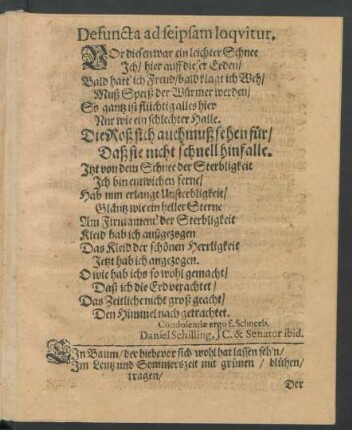 Defuncta ad seipsam loqvitur.
VOr diesen war ein leichter Schnee
Ich/ hier auff dieser Erden/
Bald hatt' ich Freud/ bald klagt ich Weh/
Muß Speiß der Würmer werden/
So gantz ist flüchtig alles hier
Nur wie ein schlechter Halle.
Die Roß sich auch muß sehen für/
Daß sie nicht schnell hinfalle.
Jtzt von dem Schnee der Sterbligkeit
Ich bin entwichen ferne/
Hab nun erlangt Unsterbligkeit/
Gläntz wie ein heller Sterne
Am Firmament' der Sterbligkeit
Kleid hab ich außgezogen
Das Kleid der schönen Herrligkeit
Jetzt hab ich angezogen.
O wie hab ichs so wohl gemacht/
Daß ich die Erd verachtet/
Das Zeitliche nicht groß geacht/
Den Himmel nach getrachtet.
Condolentiæ ergo f. Schneeb.
Daniel Schilling, JC. & Senator ibid.
EIn Baum/ der biebevor sich wohl hat lassen seh'n/
Im Lentz und Sommerszeit mit grünen / blühen/
tragen/
Der